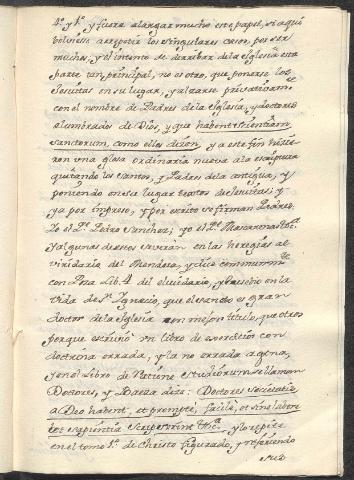 4.º y 5.º y fuera alargar mucho este papel, si aqui
bolviesse a repetir los singulares casos, por ser
muchos, y el intento de derribar de la Iglesia esta
parte tan principal, no es otro, que ponerse los
Jesuitas en su lugar, y alzarse privativam.te
con el nombre de Padres de la Iglesia, y doctores
alumbrados de Dios, y que habent scientiam
sanctorum, como ellos dizen, y a este fin hizie-
ron una glosa ordinaria nueva a la escriptura
quitando los santos, y Padres de la antigua, y
poniendo en su lugar textos de Jesuitas; y
ya por impreso, y por escrito se firman Padres.
Yo el P.e Pedro Sanchez; yo el P.e
y algunas de estas se verán en las heregias al
viridario del Mendoza, y dice
con Lib. 4 del elucidario, y en la
Vida de S.n Ignacio, que el santo es gran
doctor de la Iglesia con mejor titulo, que otros
porque escrivió un libro de exercicios con
doctrina errada, y la no errada agena,
y en el Libro de Ratione studiorum se llaman
Doctores, y Baeza dize: Doctores societatis
a Deo habent, et prompte, facile, et sine labore
sapientia scripserint &c.a y lo repite
en el tomo 1.º de Christo figurado, y refiriendo
sus